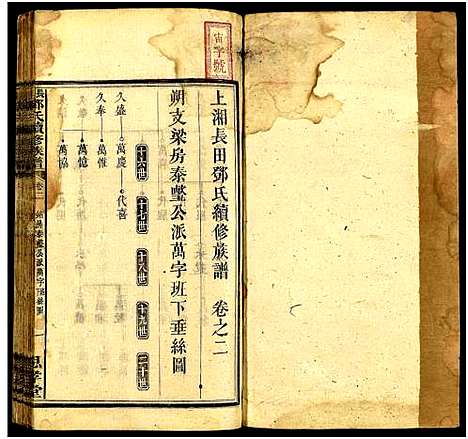 宙字號
上湘長田鄧氏續修族譜 卷之二
朔支梁房泰鑒公派萬字班下垂絲圖
十六世 十七世 十八世 十九世 二十世
久盛 萬慶 代喜
久奉 萬惟
萬憶
久奉 萬協
鄧氏續修族譜 卷二